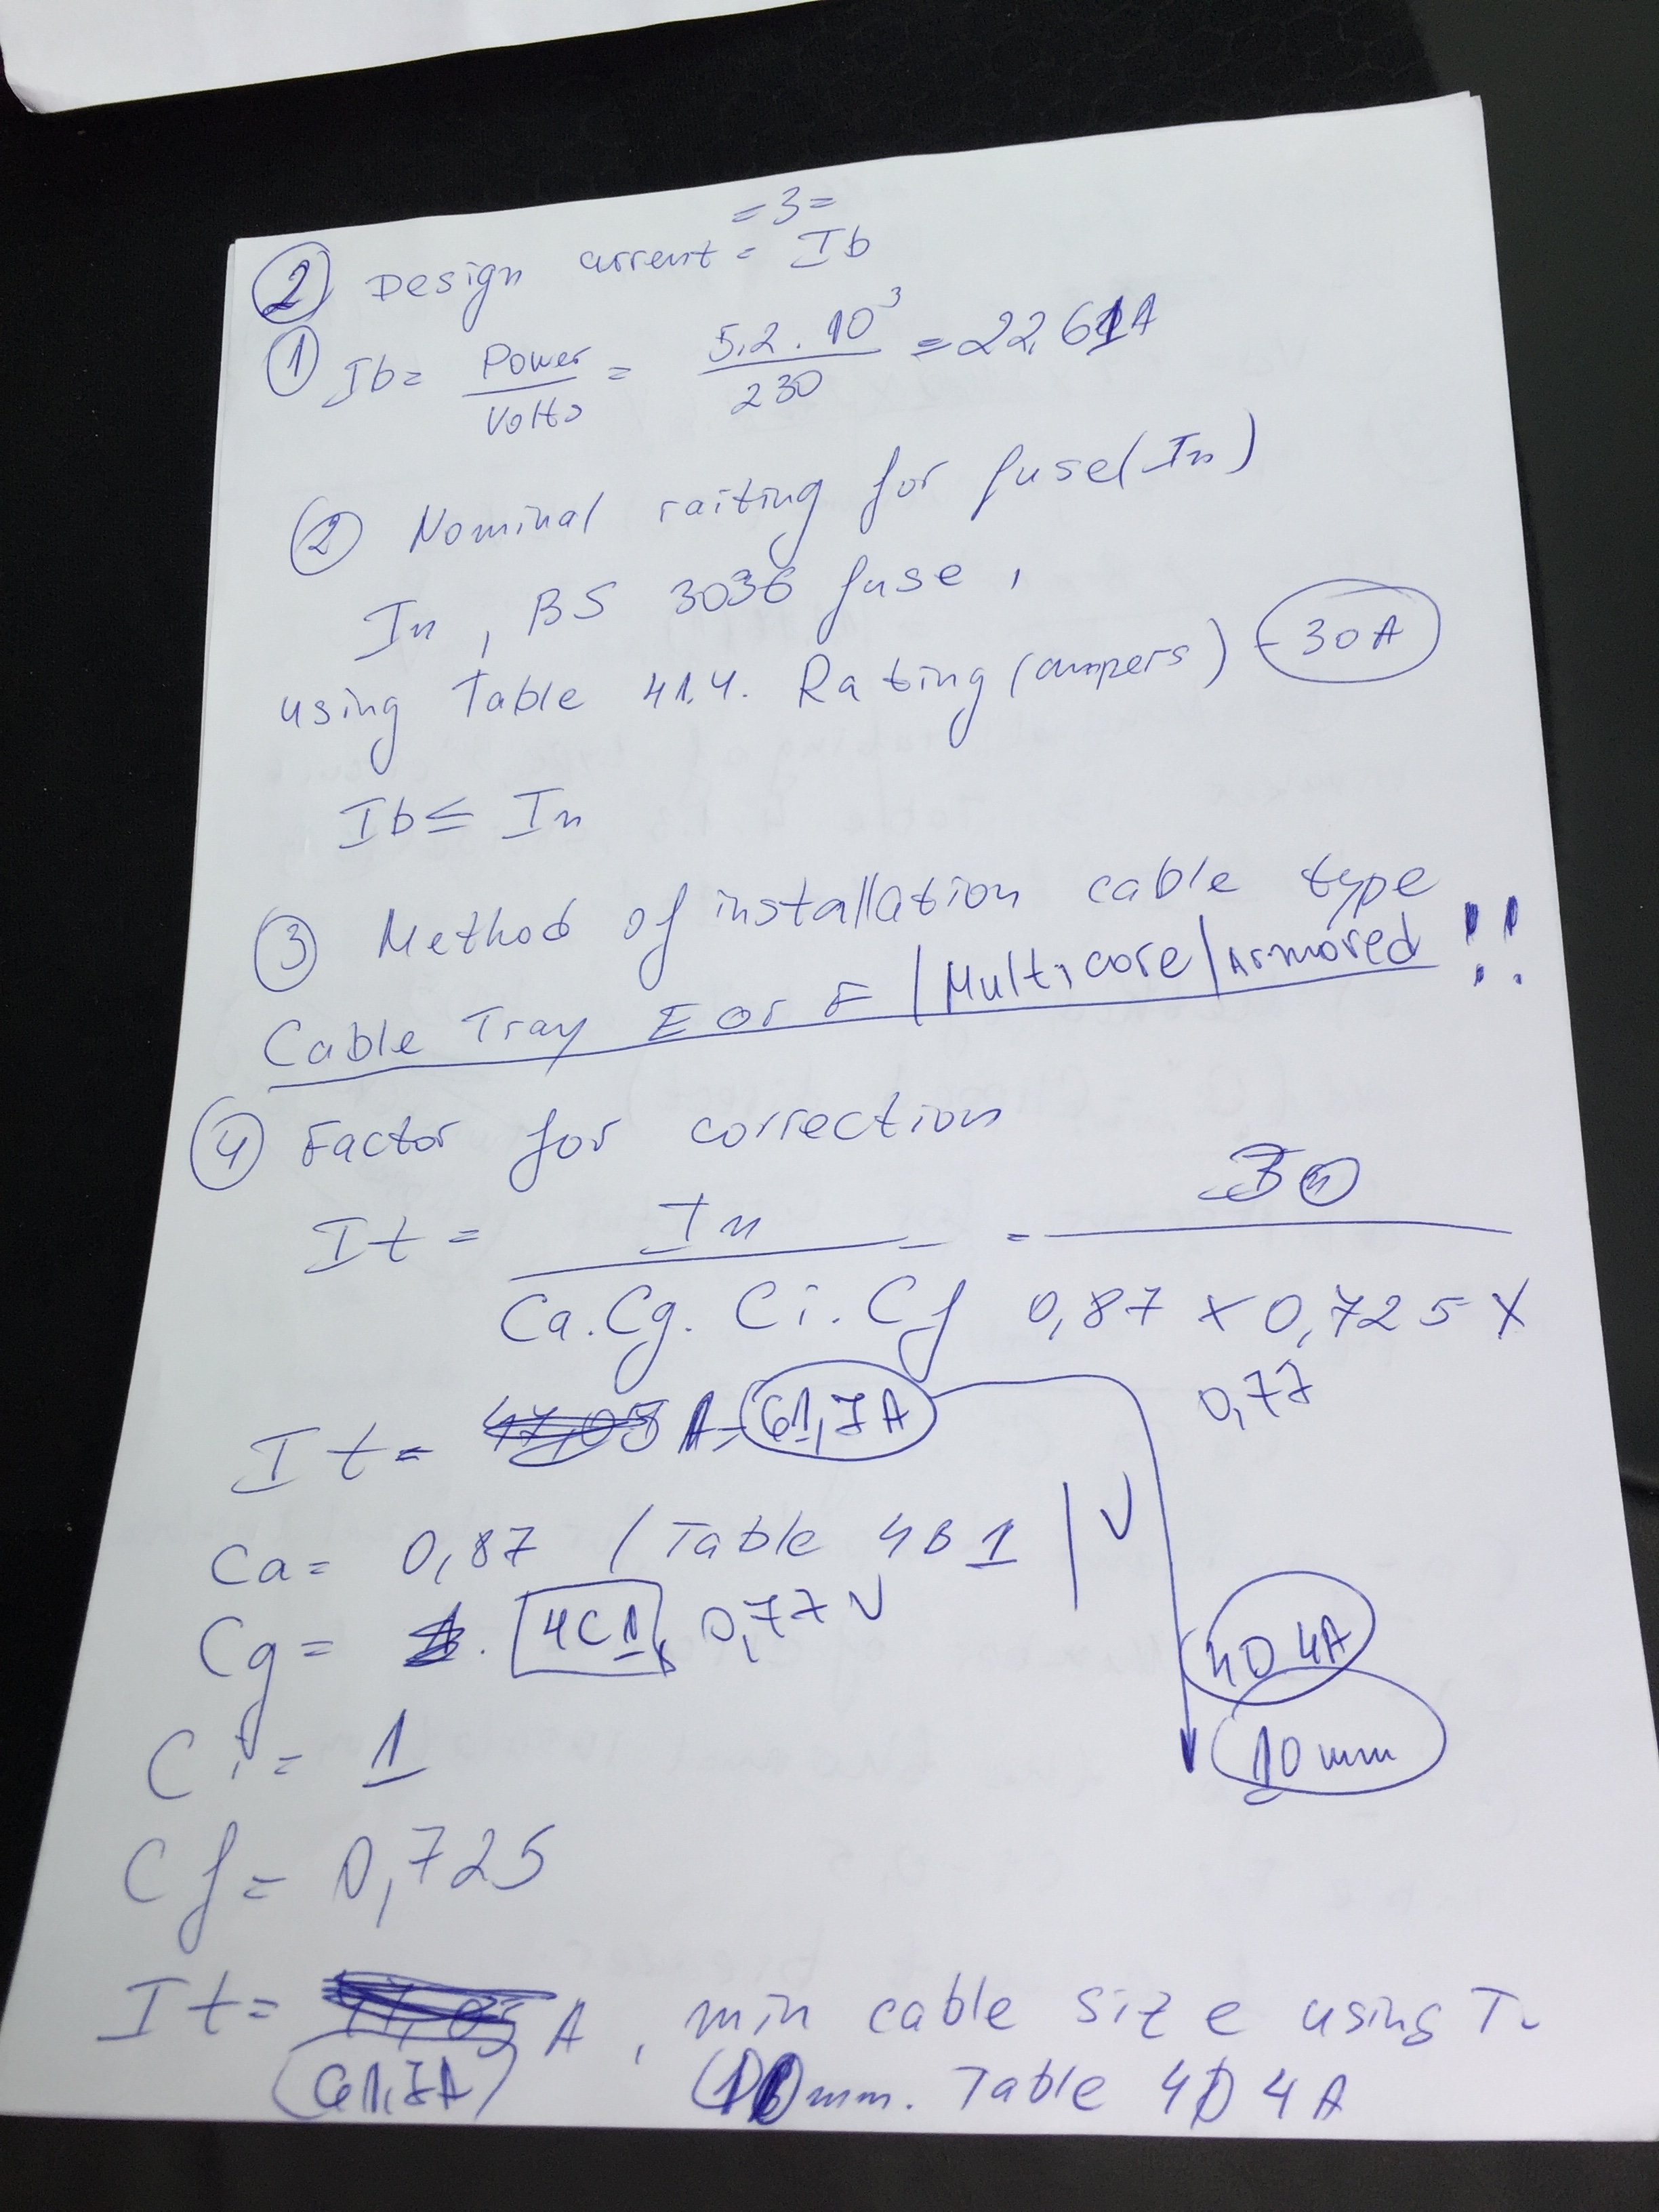 =3=
② Design current = Ib
① Ib = Power / Volts = 5,2 . 10³ / 230 = 22,61A
② Nominal raiting for fuse (In)
In, BS 3036 fuse,
using Table 41.4. Rating (ampers) - 30A
Ib ≤ In
③ Method of installation cable type
Cable Tray E or F / Multicore / Armored !!
④ Factor for correction
It = In / Ca.Cg.Ci.Cf = 30 / 0,87 x 0,725 x 0,77
It = A = 61,7A
Ca = 0,87 / Table 4B1 / V
Cg = . 4C1, 0,77 V
4D4A
Ci = 1
10mm
Cf = 0,725
It = A, min cable size using T.
61,7A
10mm. Table 4D4A